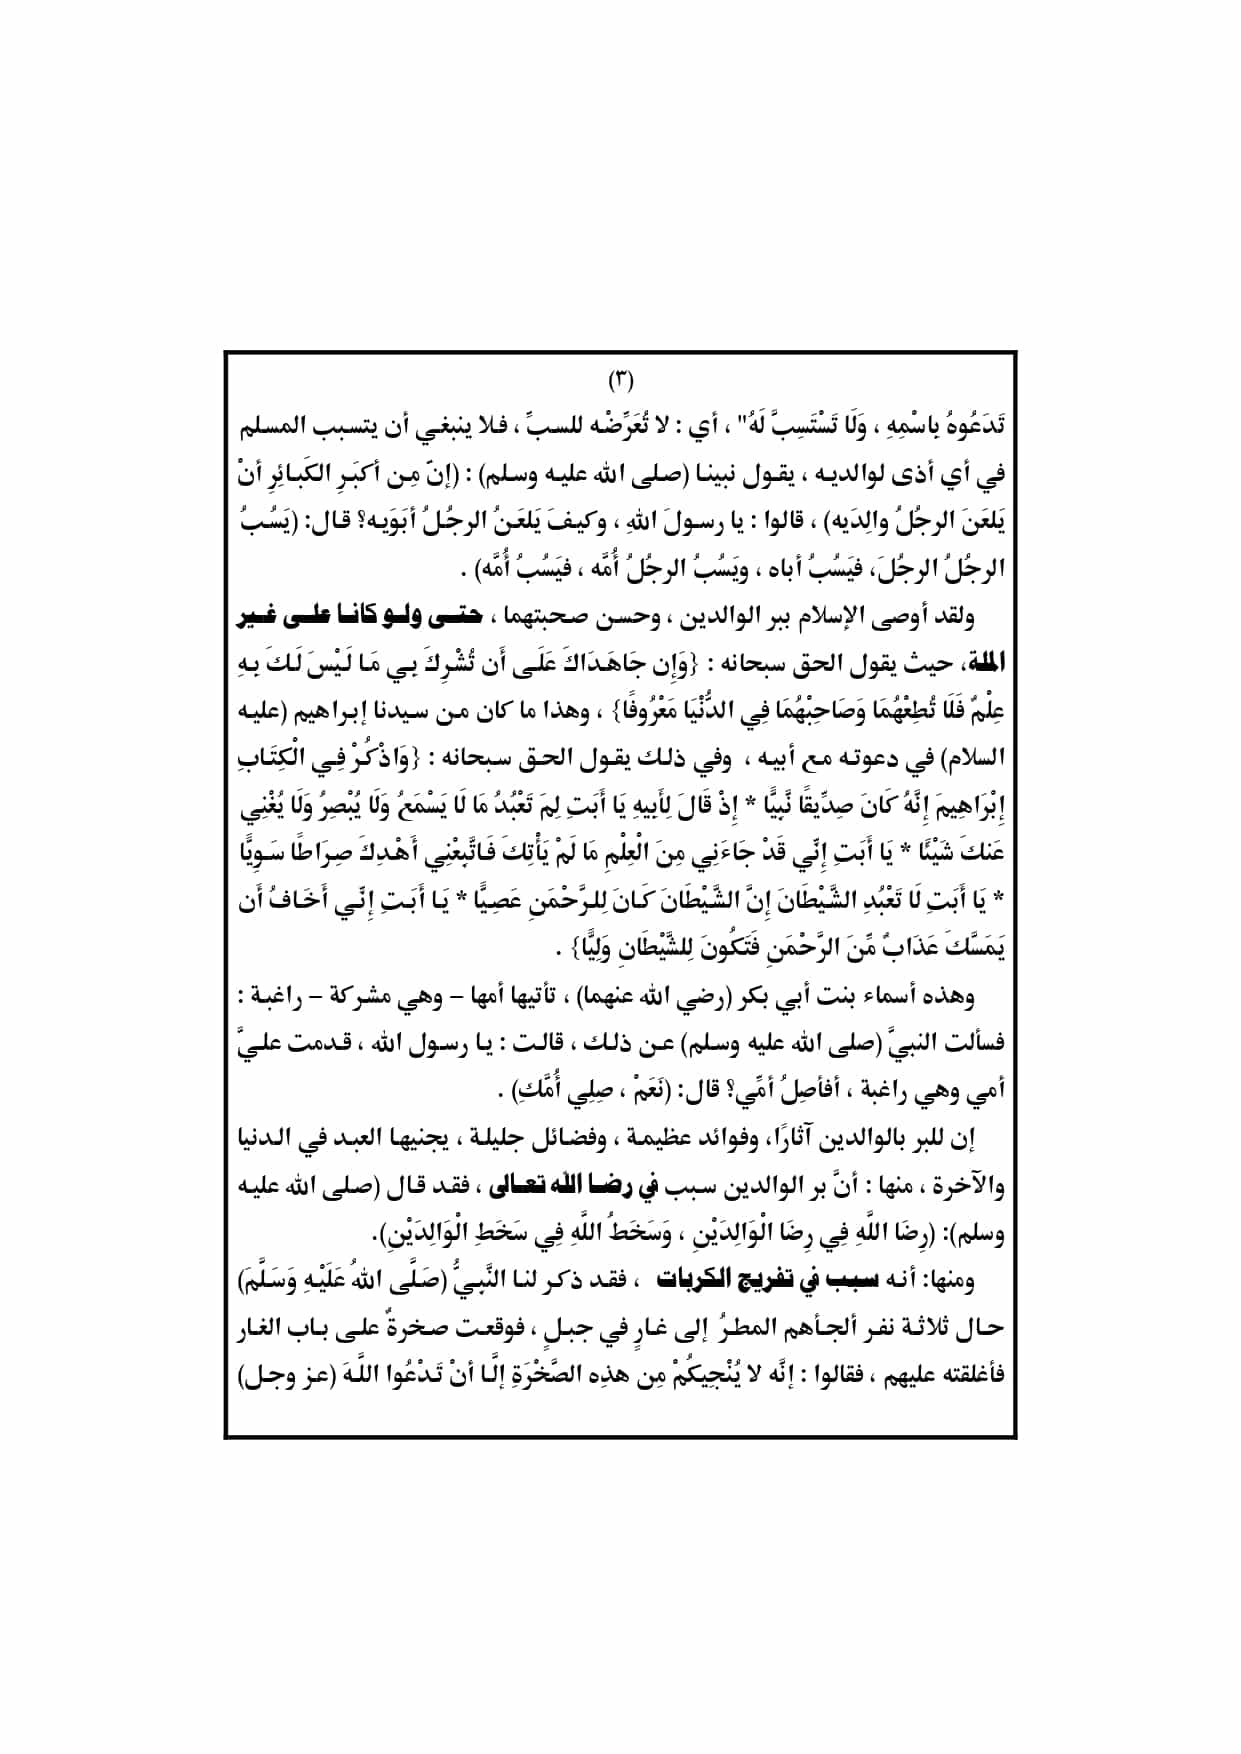 (٣)
تَدَعُوهُ بِاسْمِهِ ، وَلَا تَسْتَسِبَّ لَهُ" ، أي : لا تُعَرِّضْه للسبِّ ، فلا ينبغي أن يتسبب المسلم
في أي أذى لوالديه ، يقول نبينا (صلى الله عليه وسلم) : (إنّ مِن أكبَرِ الكَبائِرِ أنْ
يَلعَنَ الرجُلُ والِدَيه) ، قالوا : يا رسولَ اللهِ ، وكيفَ يَلعَنُ الرجُلُ أبَوَيه؟ قال: (يَسُبُ
الرجُلُ الرجُلَ، فيَسُبُ أباه ، ويَسُبُ الرجُلُ أُمَّه ، فيَسُبُ أُمَّه) .
ولقد أوصى الإسلام ببر الوالدين ، وحسن صحبتهما ، حتى ولو كانا على غير
الملة، حيث يقول الحق سبحانه : {وَإِن جَاهَدَاكَ عَلَى أَن تُشْرِكَ بِي مَا لَيْسَ لَكَ بِهِ
عِلْمٌ فَلَا تُطِعْهُمَا وَصَاحِبْهُمَا فِي الدُّنْيَا مَعْرُوفًا} ، وهذا ما كان من سيدنا إبراهيم (عليه
السلام) في دعوته مع أبيه ، وفي ذلك يقول الحق سبحانه : {وَاذْكُرْ فِي الْكِتَابِ
إِبْرَاهِيمَ إِنَّهُ كَانَ صِدِّيقًا نَّبِيًّا * إِذْ قَالَ لِأَبِيهِ يَا أَبَتِ لِمَ تَعْبُدُ مَا لَا يَسْمَعُ وَلَا يُبْصِرُ وَلَا يُغْنِي
عَنكَ شَيْئًا * يَا أَبَتِ إِنِّي قَدْ جَاءَنِي مِنَ الْعِلْمِ مَا لَمْ يَأْتِكَ فَاتَّبِعْنِي أَهْدِكَ صِرَاطًا سَوِيًّا
* يَا أَبَتِ لَا تَعْبُدِ الشَّيْطَانَ إِنَّ الشَّيْطَانَ كَانَ لِلرَّحْمَنِ عَصِيًّا * يَا أَبَتِ إِنِّي أَخَافُ أَن
يَمَسَّكَ عَذَابٌ مِّنَ الرَّحْمَنِ فَتَكُونَ لِلشَّيْطَانِ وَلِيًّا} .
وهذه أسماء بنت أبي بكر (رضي الله عنهما) ، تأتيها أمها – وهي مشركة – راغبة :
فسألت النبيَّ (صلى الله عليه وسلم) عن ذلك ، قالت : يا رسول الله ، قدمت عليَّ
أمي وهي راغبة ، أفأصِلُ أمِّي؟ قال: (نَعَمْ ، صِلِي أُمَّكِ) .
إن للبر بالوالدين آثارًا، وفوائد عظيمة ، وفضائل جليلة ، يجنيها العبد في الدنيا
والآخرة ، منها : أنَّ بر الوالدين سبب في رضا الله تعالى ، فقد قال (صلى الله عليه
وسلم): (رِضَا اللَّهِ فِي رِضَا الْوَالِدَيْنِ ، وَسَخَطُ اللَّهِ فِي سَخَطِ الْوَالِدَيْنِ).
ومنها: أنه سبب في تفريج الكربات ، فقد ذكر لنا النَّبِيُّ (صَلَّى اللهُ عَلَيْهِ وَسَلَّمَ)
حال ثلاثة نفر ألجأهم المطرُ إلى غارٍ في جبلٍ ، فوقعت صخرةٌ على باب الغار
فأغلقته عليهم ، فقالوا : إنَّه لا يُنْجِيكُمْ مِن هذِه الصَّخْرَةِ إلَّا أنْ تَدْعُوا اللَّهَ (عز وجل)